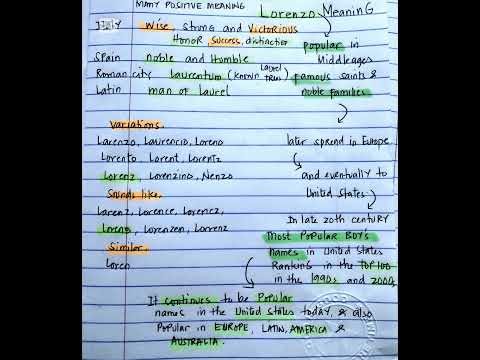 MANY POSITIVE MEANING
Lorenzo Meaning
Italy wise, strong and victorious
Honor, success, distinction
Spain noble and humble
Roman city Laurentum (known Laurel tree)
Latin man of laurel
popular in
Middle ages
famous saints &
noble families
later spread in Europe
and eventually to
United States
In late 20th century
most popular boy's
names in United States
Ranking in the TOP 100
in the 1990s and 2000s
Variations
Larenzo, Laurencio, Loreno
Lorento, Lorent, Lorentz
Lorenz, Lorenzino, Nenzo
Sounds like
Larenz, Lorence, Lorencz,
Loreng, Lorenzen, Lorrenz
Similar
Loren
It continues to be popular
names in the United States today, & also
Popular in EUROPE, LATIN, AMERICA &
AUSTRALIA.